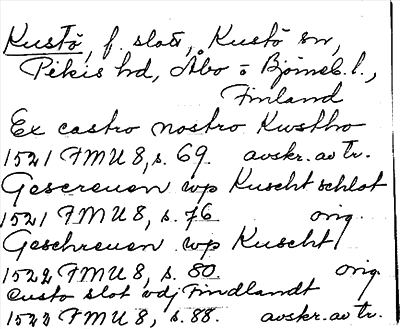 Kustö, f. slott, Kustö sn,
Pikis hd, Åbo o Björneb. l.,
Finland
Ex castro nostro Kwstho
1521 FMU 8, s. 69. avskr. av Tr.
Gescreuen vp Kuscht schlot
1521 FMU 8, s. 76 orig.
Geschreuen vp Kuscht
1522 FMU 8, s. 80. orig
Custo slot vdj Findlandt
1522 FMU 8, s. 88. avskr. av Tr.